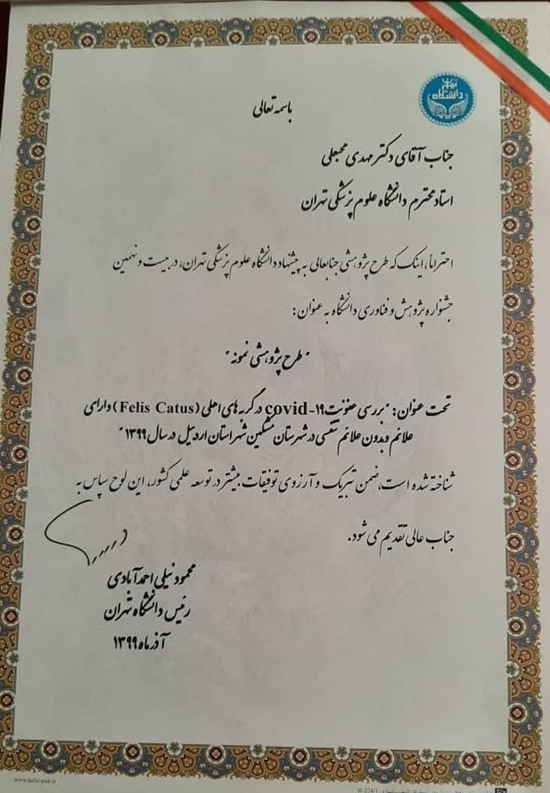 باسمه تعالی
دانشگاه
جناب آقای دکتر مهدی محبعلی
استاد محترم دانشگاه علوم پزشکی تهران
احتراماً، اینک که طرح پژوهشی جنابعالی به پیشنهاد دانشگاه علوم پزشکی تهران، در بیست و نهمین
جشنواره پژوهش و فناوری دانشگاه به عنوان:
"طرح پژوهشی نمونه"
تحت عنوان: "بررسی عفونت covid-۱۹ در گربه های اهلی (Felis Catus) دارای
علائم و بدون علائم تنفسی در شهرستان مشگین شهر استان اردبیل در سال ۱۳۹۹"
شناخته شده است، ضمن تبریک و آرزوی توفیقات بیشتر در توسعه علمی کشور، این لوح سپاس به
جناب عالی تقدیم می شود.
محمود نیلی احمدآبادی
رئیس دانشگاه تهران
آذرماه ۱۳۹۹